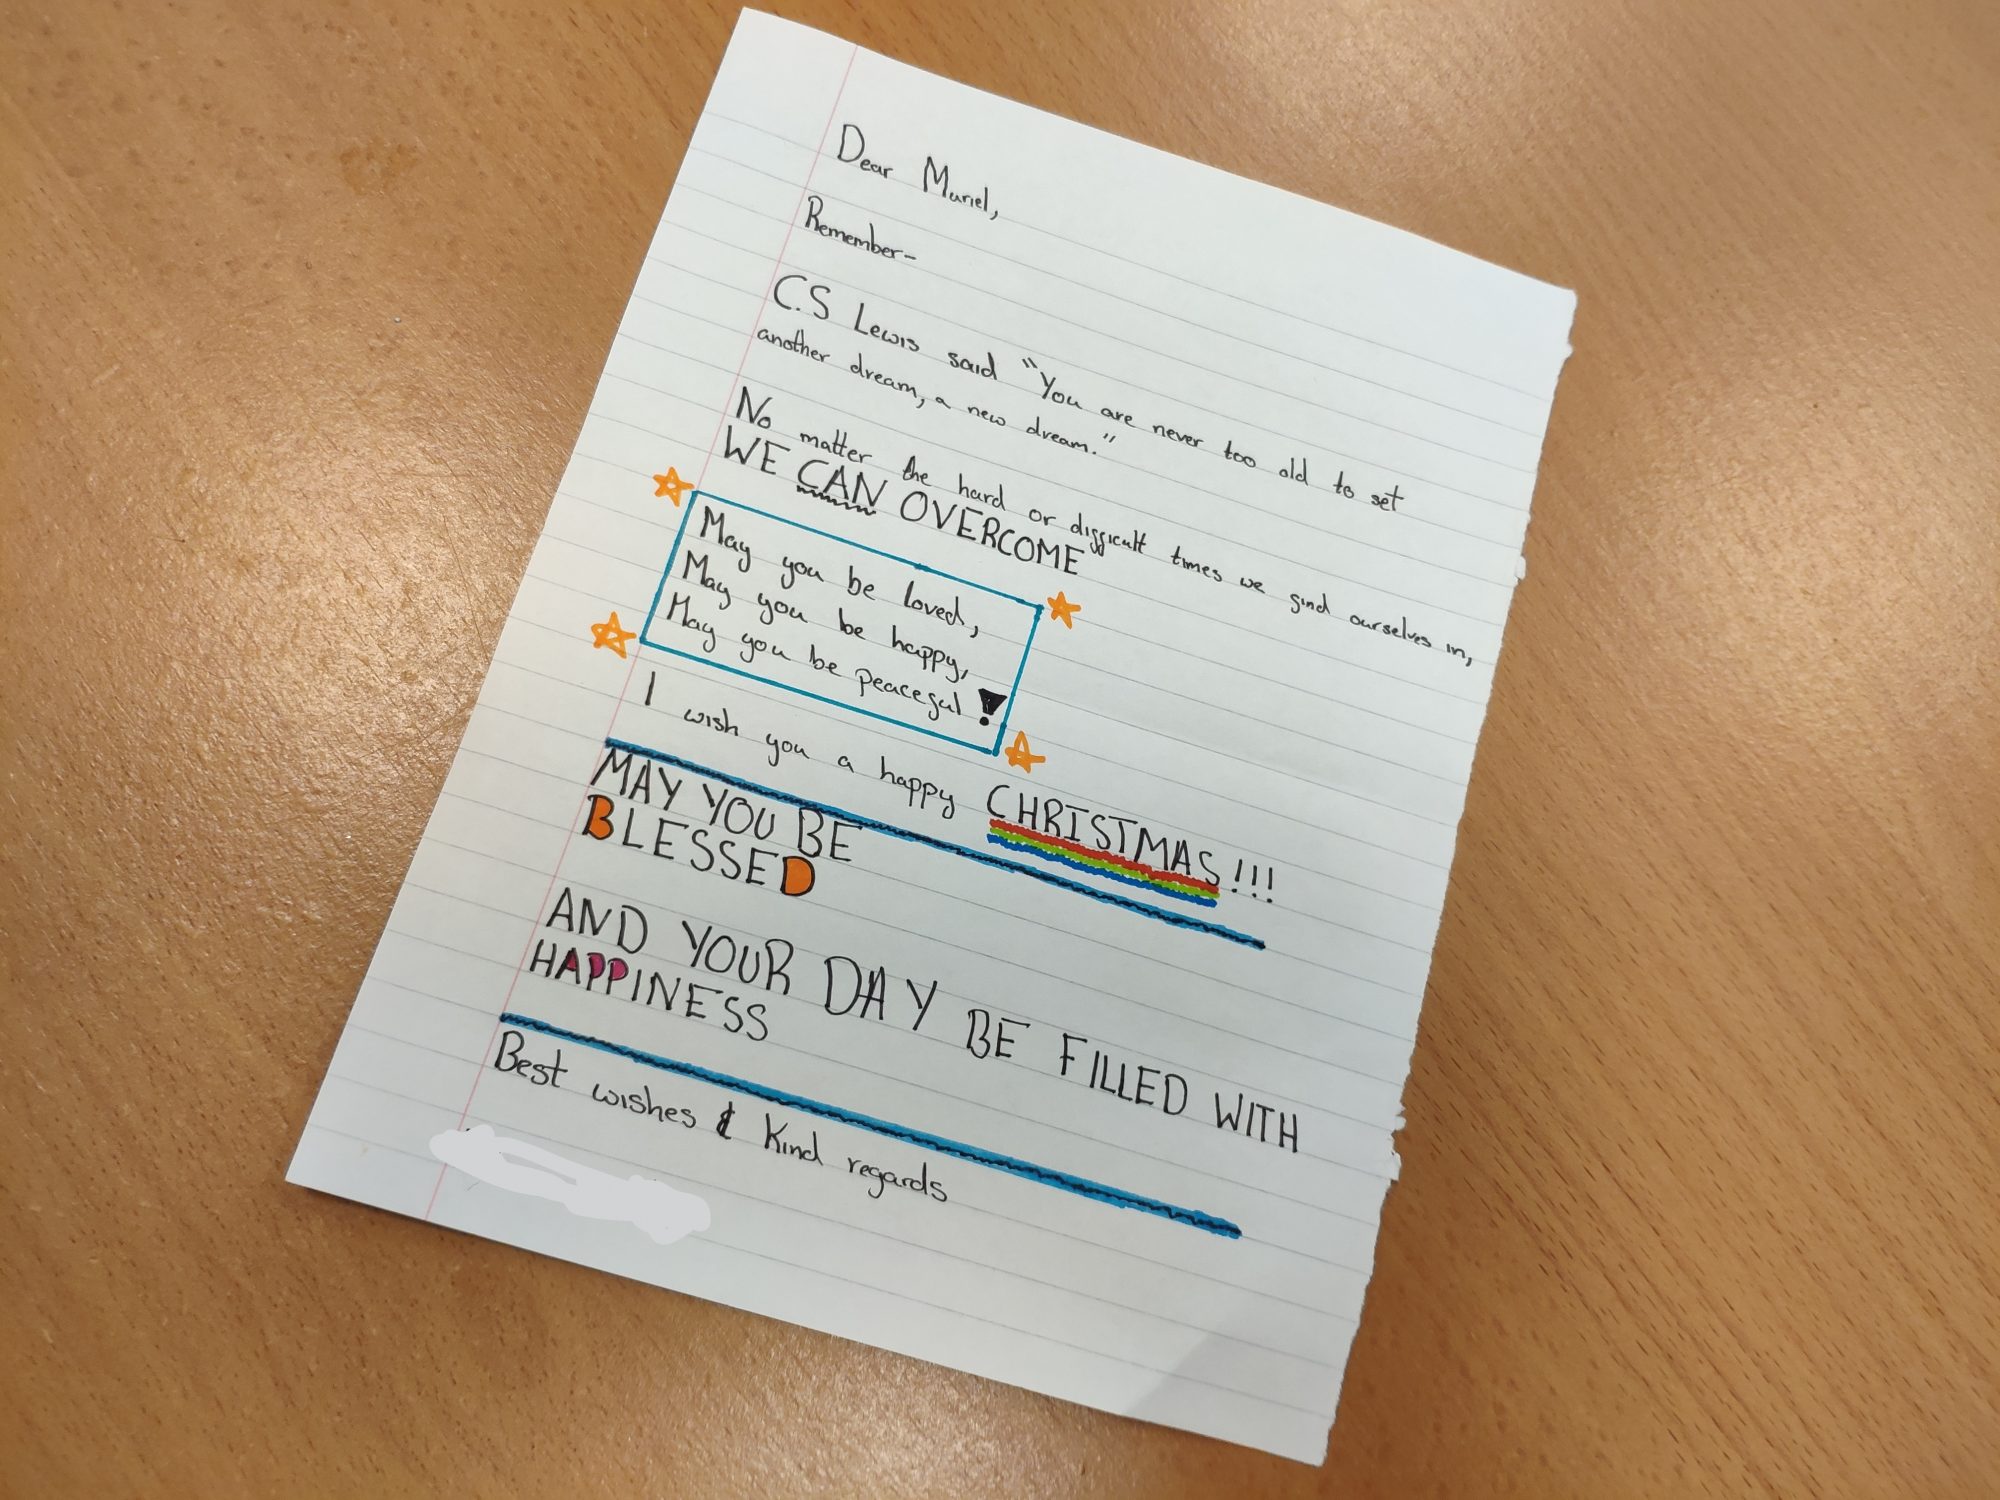 Dear Muriel,
Remember-
C.S Lewis said "You are never too old to set
another dream, a new dream."
No matter the hard or difficult times we find ourselves in,
WE CAN OVERCOME
May you be loved,
May you be happy,
May you be peaceful!
I wish you a happy CHRISTMAS!!!
MAY YOU BE
BLESSED
AND YOUR DAY BE FILLED WITH
HAPPINESS
Best wishes & Kind regards